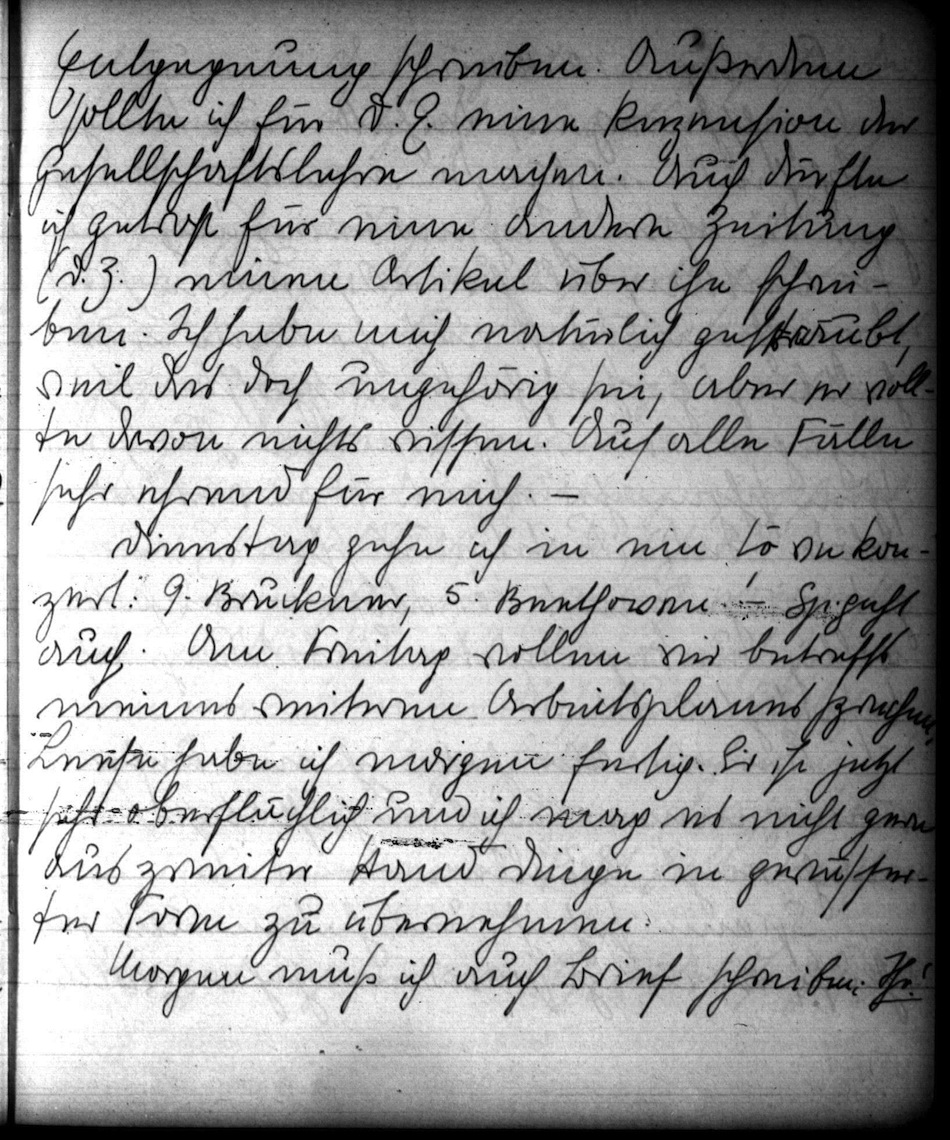 Entgegnung schreiben. Außerdem
sollte ich für D. G. eine Rezension der
Gesellschaftslehre machen. Auch dürfte
ich getrost für eine andere Zeitung
(D. Z.) einen Artikel über ihn schrei-
ben. Ich habe mich natürlich gesträubt,
weil das doch ungehörig sei, aber er woll-
te davon nichts wissen. Auf alle Fälle
sehr ehrend für mich. —
Dienstag gehe ich in ein Löwe kon-
zert: 9. Bruckner, 5. Beethoven. — Sp. geht
auch. Am Freitag wollen wir betreffs
meines weiteren Arbeitsplanes sprechen,
habe ich morgen fertig. Er ist jetzt
sehr oberflächlich und ich mag es nicht gern
aus zweiter Hand Dinge in
ter Form zu übernehmen.
Morgen muß ich auch Brief schreiben.